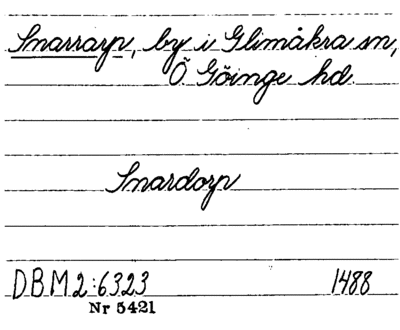 Snararp, by i Glimåkra sn,
Ö Göinge hd.
Snardorp
DBM2:6323 1488
Nr 5421